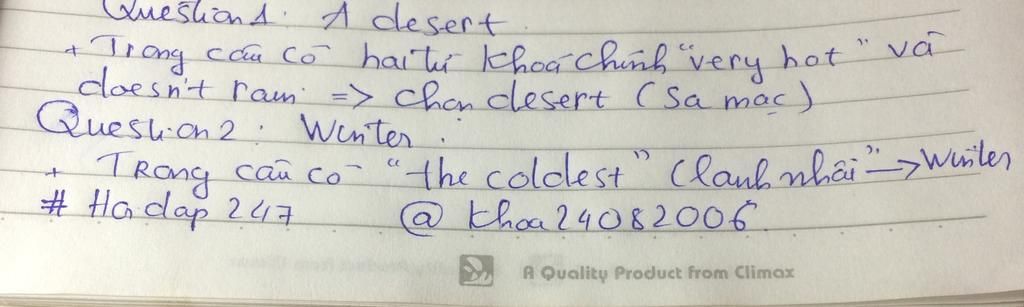 Question 1. A desert.
+ Trong câu có hai từ khoá chính "very hot" và
doesn't rain => chọn desert (sa mạc)
Question 2. Winter.
+ TRong câu có "the coldest" (lạnh nhất" -> Winter
# Hỏi đáp 247 @ khoa24082006
A Quality Product from Climax